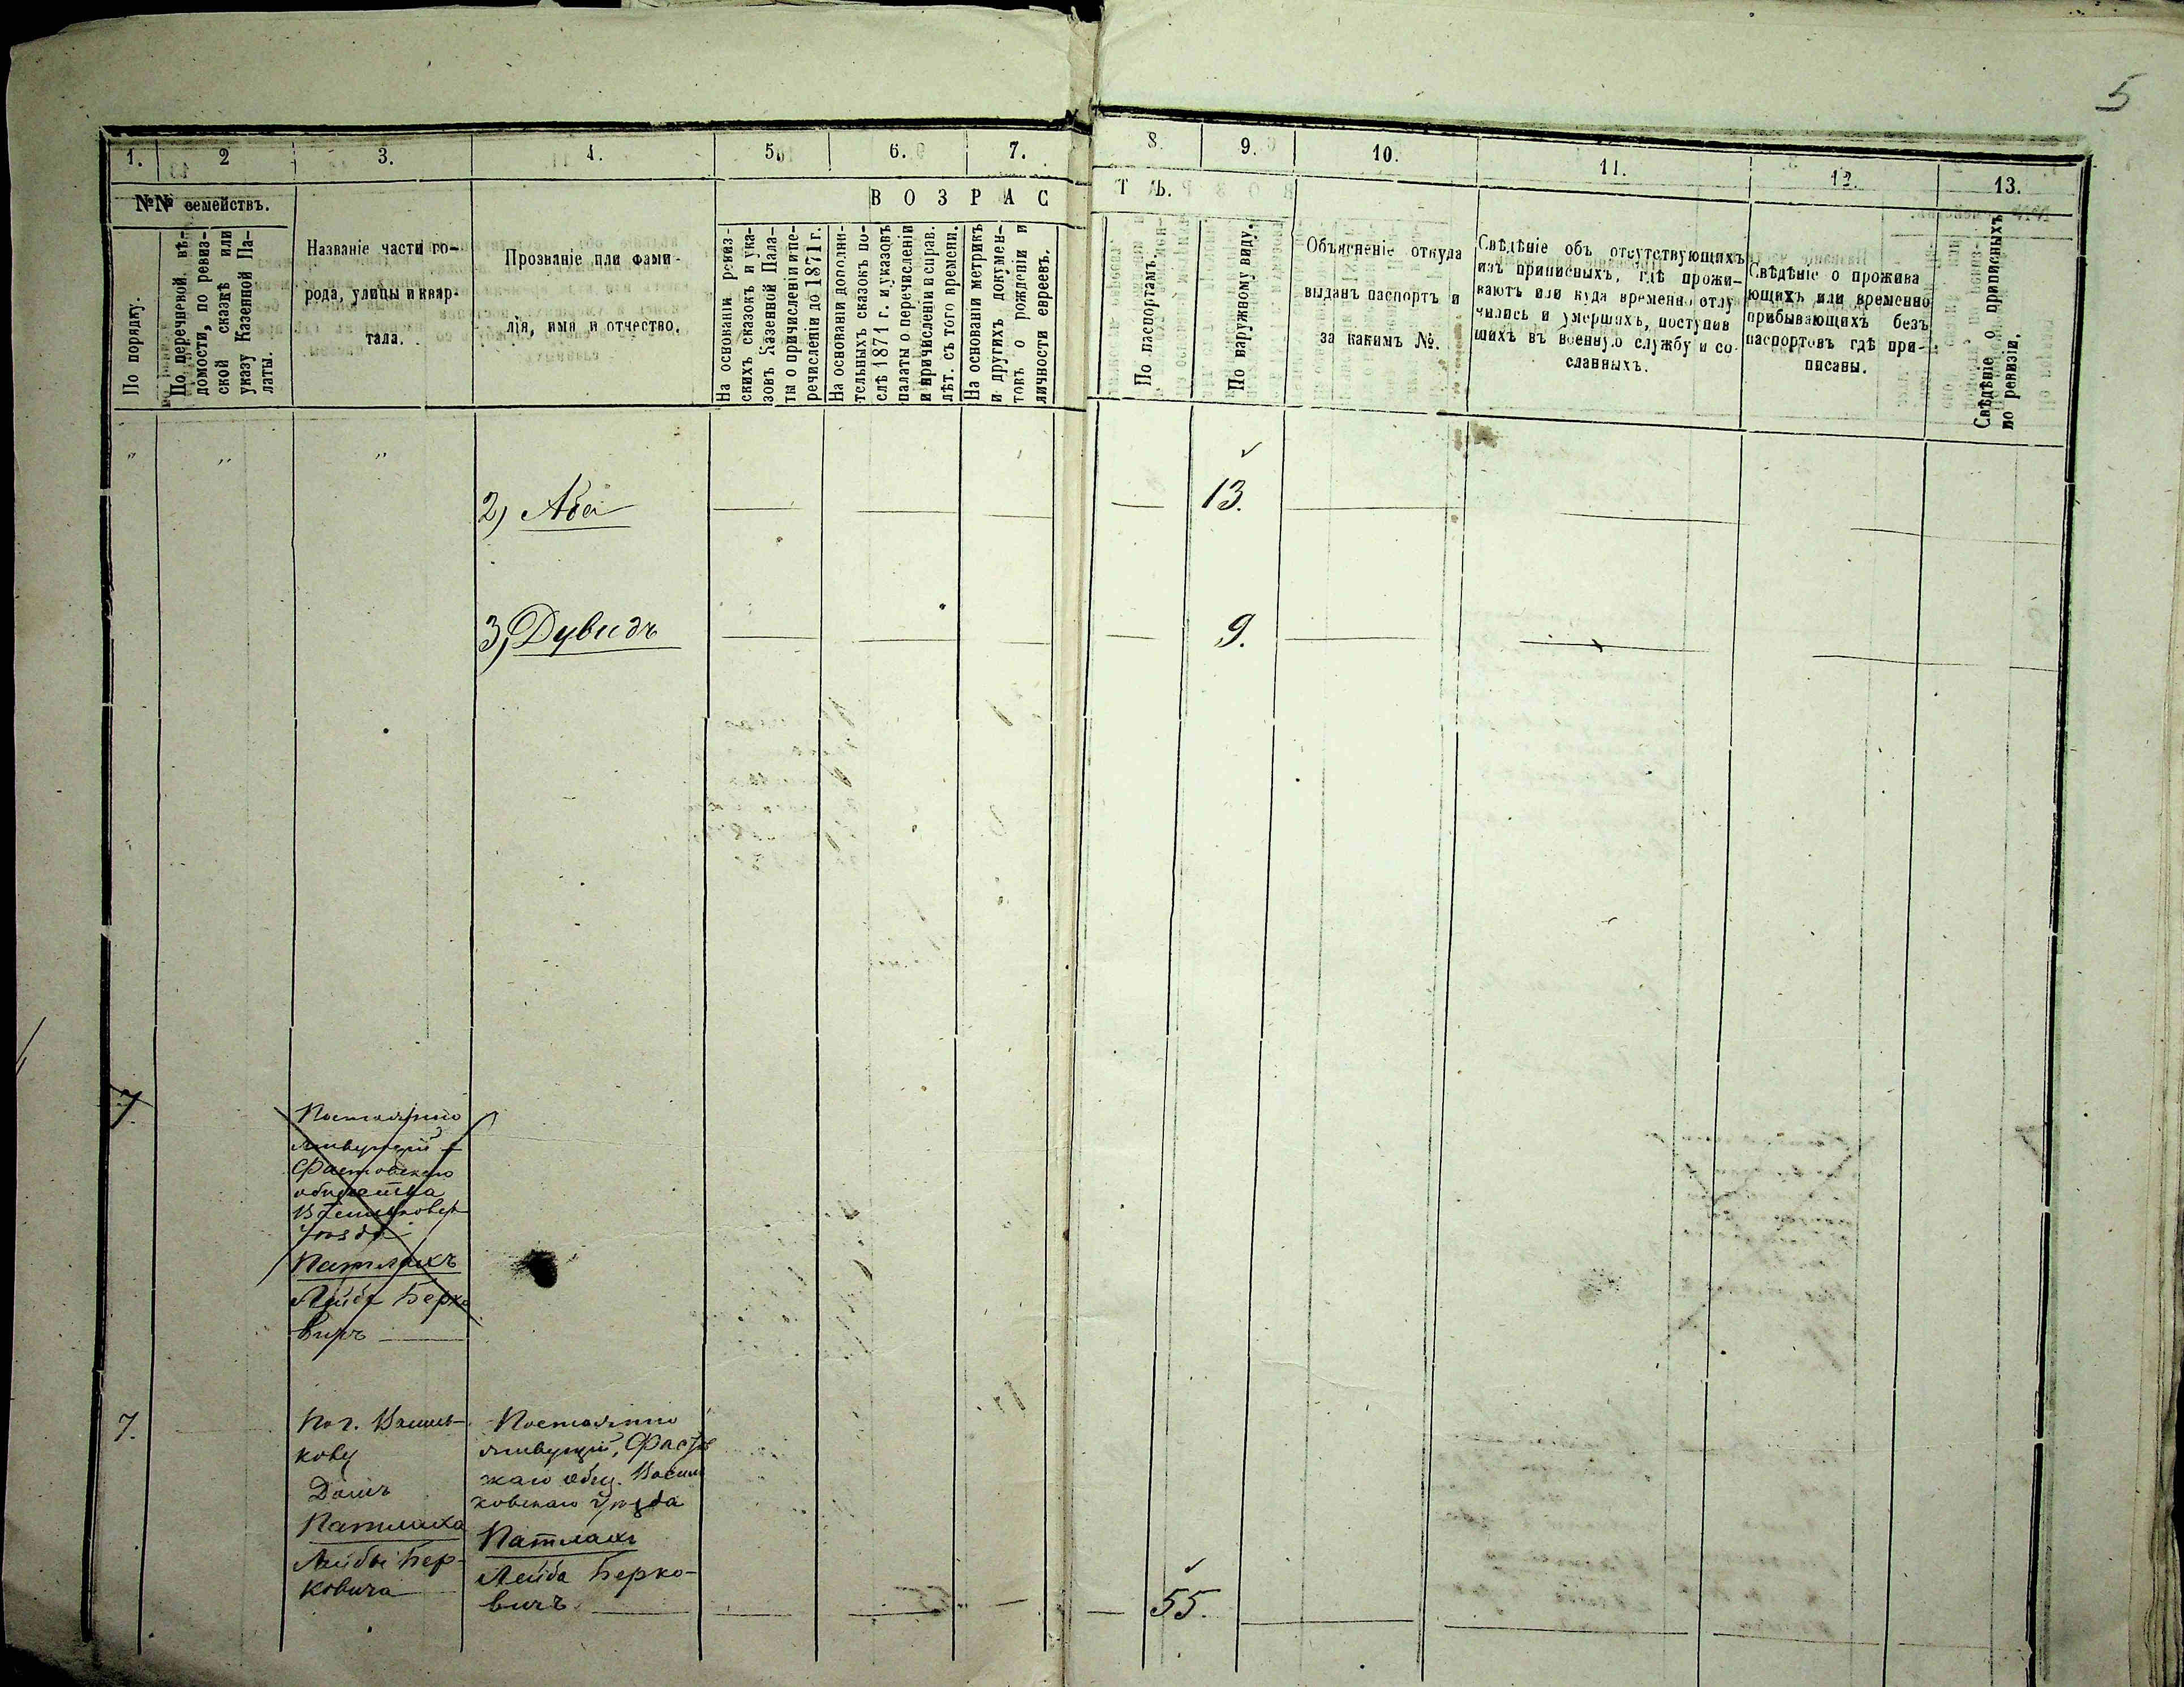 5
1. 2 3. 4. 5. 6. 7. 8. 9. 10. 11. 12. 13.
№№ семействъ.
В О З Р А С Т Ъ.
По порядку.
По перечневой вѣ-
домости, по ревиз-
ской сказкѣ или
указу Казенной Па-
латы.
Названіе части го-
рода, улицы и квар-
тала.
Прозваніе или фами-
лія, имя и отчество.
На основаніи ревиз-
скихъ сказокъ и ука-
зовъ Казенной Пала-
ты о причисленіи и пе-
речисленіи до 1871 г.
На основаніи дополни-
тельныхъ сказокъ по-
слѣ 1871 г. и указовъ
палаты о перечисленіи
и причисленіи и справ.
лѣт. съ того времени.
На основаніи метрикъ
и другихъ докумен-
товъ о рожденіи и
личности евреевъ.
По паспортамъ.
По наружному виду.
Объясненіе откуда
выданъ паспортъ и
за какимъ №.
Свѣдѣніе объ отсутствующихъ
изъ приписныхъ, гдѣ прожи-
ваютъ или куда временно отлу
чились и умершихъ, поступив
шихъ въ военную службу и со
сланныхъ.
Свѣдѣніе о прожива
ющихъ или временно
прибывающихъ безъ
паспортовъ гдѣ при-
писаны.
Свѣдѣніе о приписныхъ
по ревизіи.
" " "
2) Аба — — — — 13. — — —
3) Дувидъ — — — — 9. — — —
7
Постоянно
живущій
Фастовскаго
общества
Васильковск
уѣзда
Патлахъ
Лейба Берко
вичъ —
7.
По г. Василь-
кову
Домъ
Патлаха
Лейбы Бер-
ковича
Постоянно
живущій, Фастов
скаго общ. Василь
ковскаго уѣзда
Патлахъ
Лейба Берко-
вичъ — — — — — 55. — — —